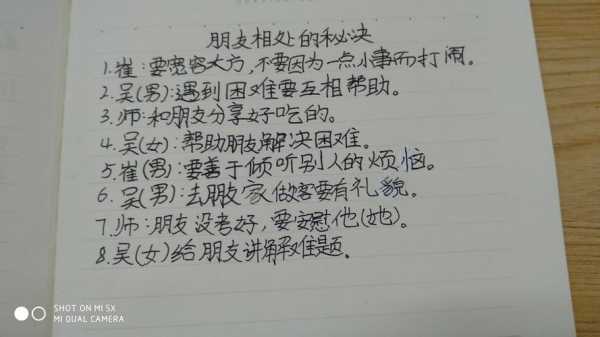 朋友相处的秘决
1.崔:要宽容大方,不要因为一点小事而打闹。
2.吴(男):遇到困难要互相帮助。
3.师:和朋友分享好吃的。
4.吴(女):帮助朋友解决困难。
5.崔(男):要善于倾听别人的烦恼。
6.吴(男):去朋友家做客要有礼貌。
7.师:朋友没考好,要安慰他(她)。
8.吴(女)给朋友讲解难题。
SHOT ON MI 5X
MI DUAL CAMERA